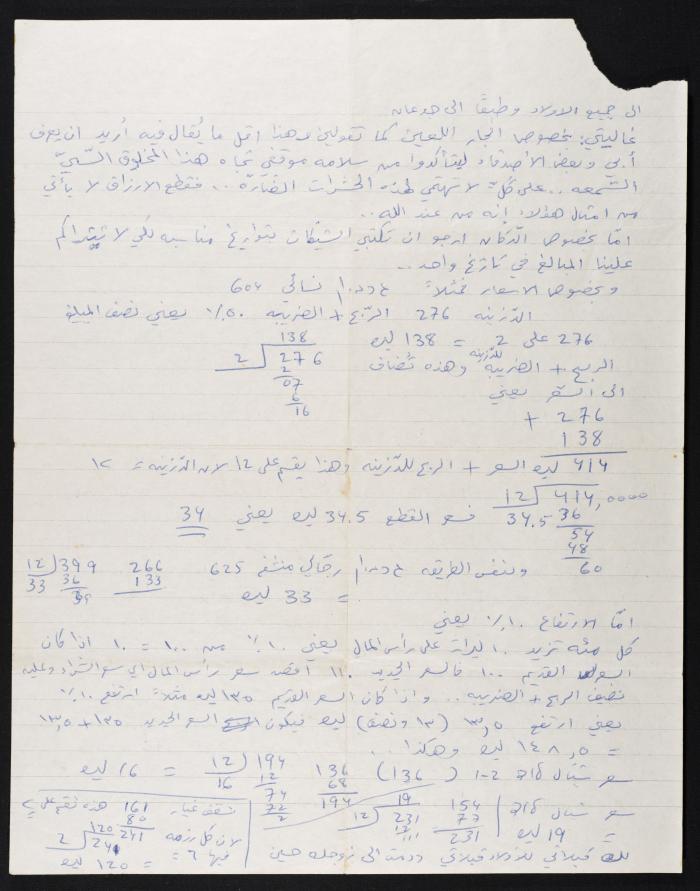 الى جميع الاولاد وطبقًا الى جدعان
غاليتي: بخصوص الجار اللعين كما تقولين وهذا اقل ما يُقال فيه أريد ان يعرف
أبي وبعض الأصدقاء ليتأكدوا من سلامة موقفي تجاه هذا المخلوق السّيّئ
السّمعه .. على كلٍّ لا تهتمي لهذه الحشرات الضارّة .. فقطع الارزاق لا يأتي
من امثال هؤلاء إنه من عند الله ..
امّا بخصوص الدّكان ارجو ان تكتبي الشيكات بتواريخ مناسبه لكي لا تتراكم
علينا المبالغ في تاريخ واحد ..
وبخصوص الاسعار فمثلاً نسائي 604
الدّزينه 276 الرّبح + الضريبه ٥٠٪ يعني نصف المبلغ
276 على 2 = 138 ليره
138
2 276
2
07
6
16
الربح + الضريبه للدّزينه وهذه تُضاف
الى السّعر يعني
276 +
138
414 ليره السعر + الربح للدّزينه وهذا يقسم على 12 لان الدّزينه = ١٢
12 414,0000
34.5 36
54
48
60
فسعر القطع 34.5 ليره يعني 34
وبنفس الطريقه رجّالي 625
266
133
12 399
33 36
39
= 33 ليره
امّا الارتفاع ١٠٪ يعني
كل مئه تزيد ١٠ ليرات على رأس المال يعني ١٠٪ من ١٠٠ = ١٠ اذا كان
السعر القديم ١٠٠ فالسعر الجديد ١١٠ اقصد سعر رأس المال اي سعر الشراء وعليه
نضيف الربح + الضريبه .. واذا كان السعر القديم ١٣٥ ليره مثلاً ارتفع ١٠٪
يعني ارتفع ١٣,٥ (١٣ ونصف) ليره فيكون السعر الجديد ١٣٥ + ١٣,٥
= ١٤٨,٥ ليره وهكذا ..
سعر 1-2 (136)
136
68
194
12 194
16 12
74
72
2
= 16 ليره
سعر
= 19 ليره
154
77
231
19
12 231
12
111
161
80
241
هذه تقسم على ٢
لان كل رزمه
فيها ٦ =
120
2 241
= ١٢٠ ليره
لك قبلاتي للاولاد قبلاتي ودمت الى زوجك حسين